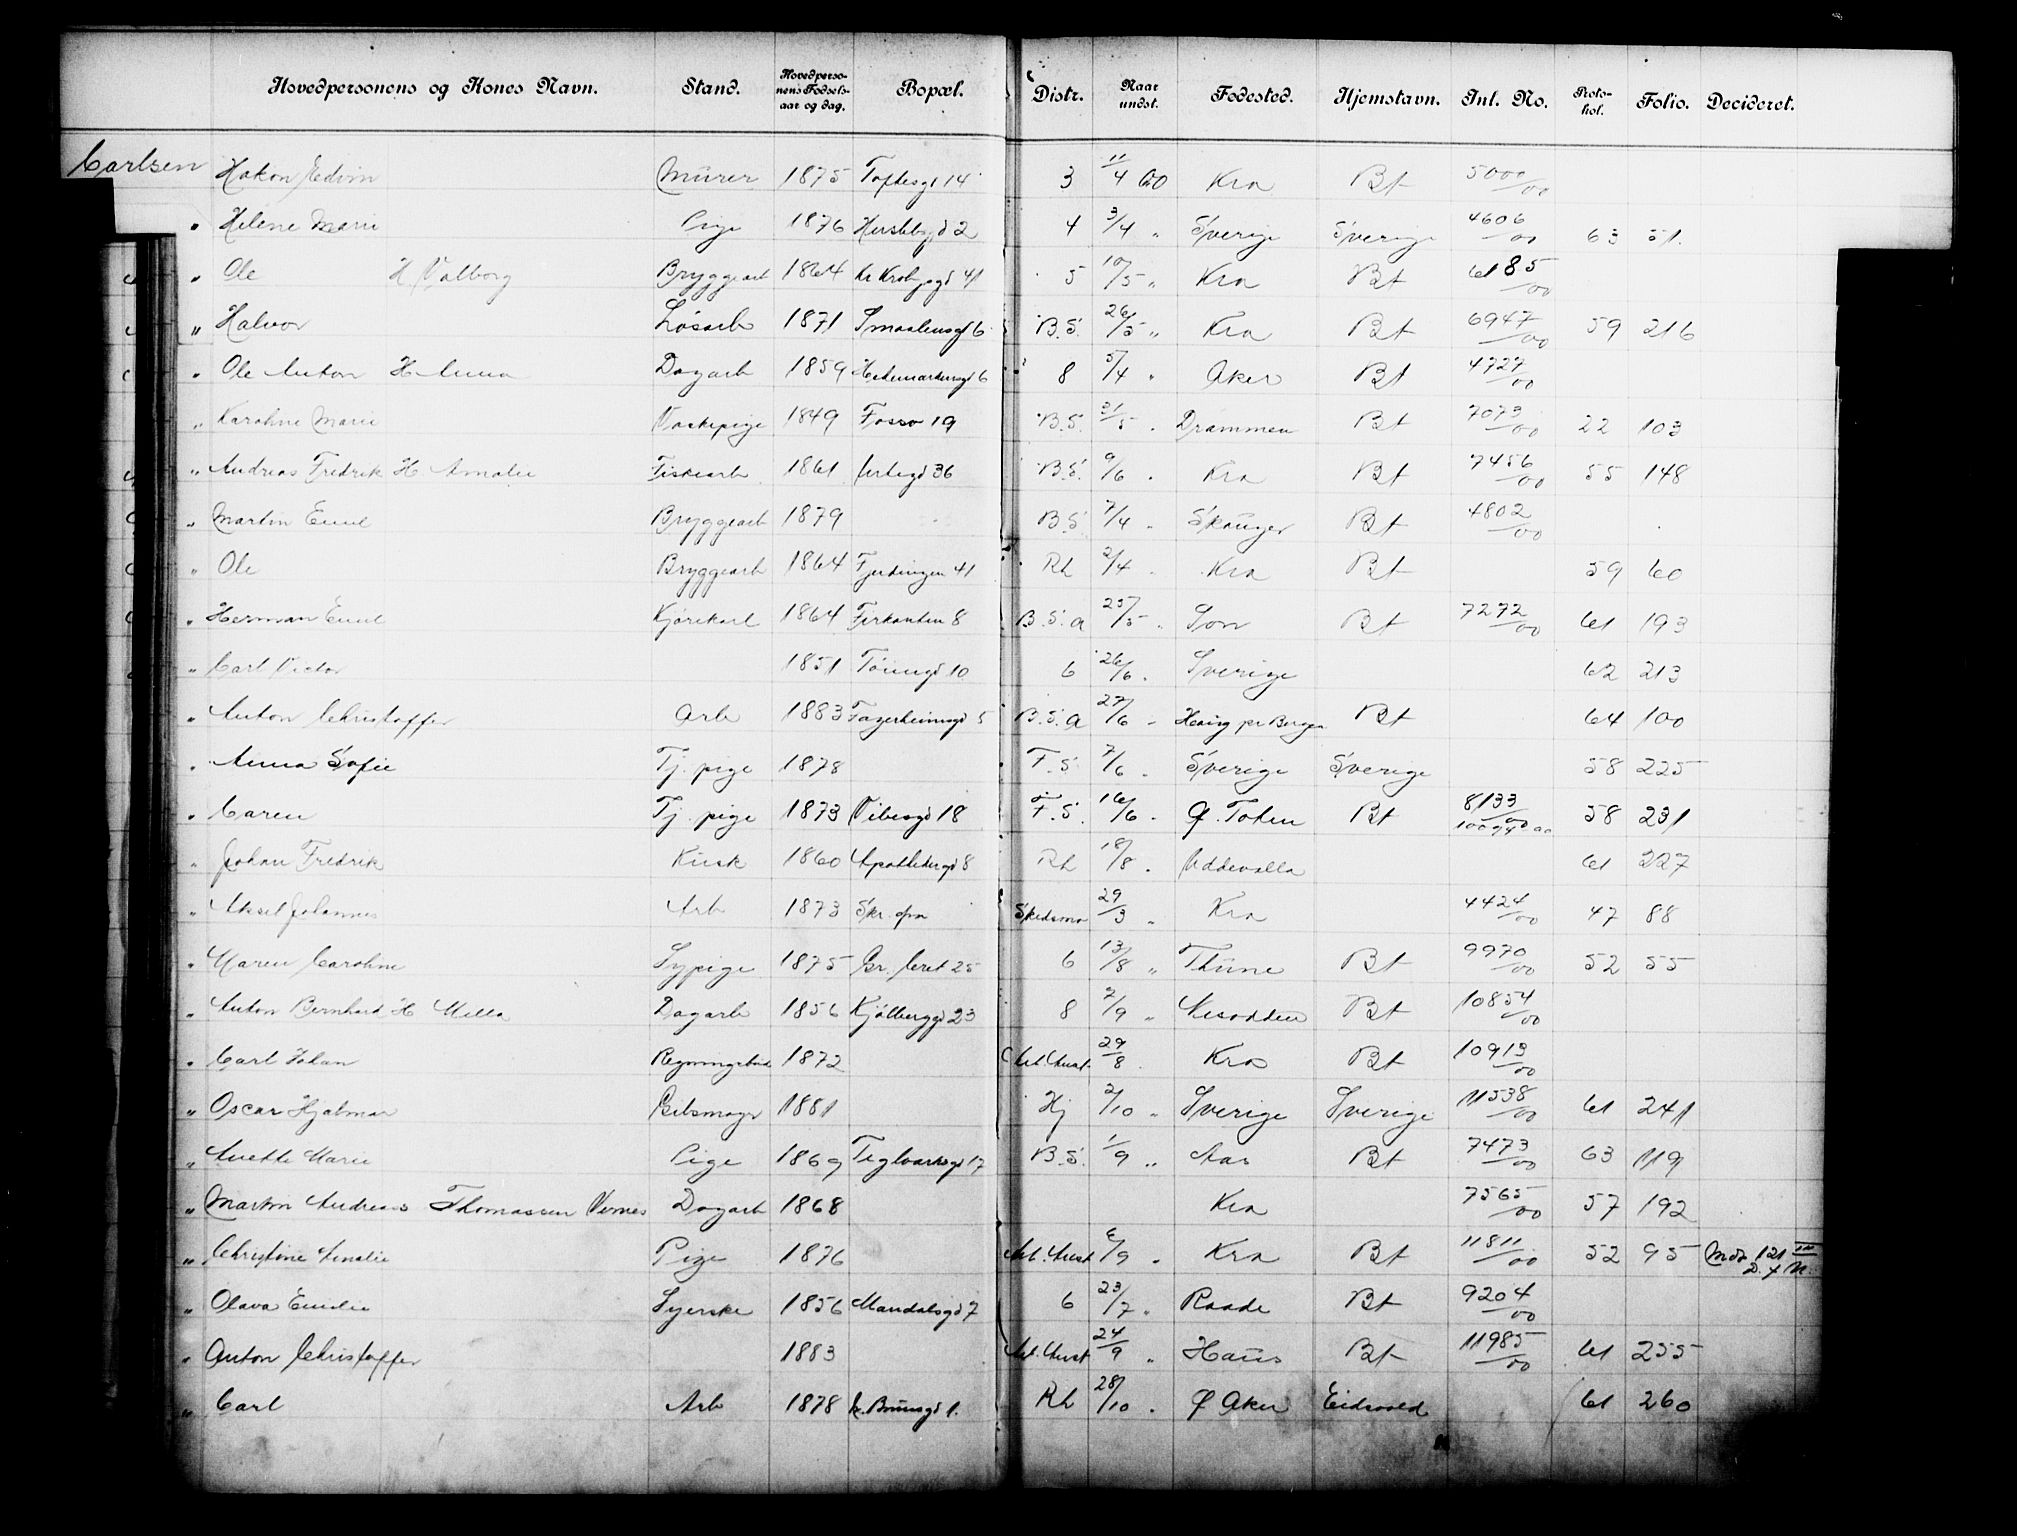 Hovedpersonens og Kones Navn. Stand. Hovedpersonens Fødselsaar og dag. Bopæl. Distr. Naar undst. Fødested. Hjemstavn. Inl. No. Protokol. Folio. Decideret.
Carlsen Hakon Edvin Mürer 1875 Toftesgd 14 3 11/4 00 Kra Bt 5000/00
" Helene Marie Pige 1876 Herslebsgd 2 4 3/4 " Sverige Sverige 4606/00 63 51.
" Ole H Valborg Bryggearb 1864 41 5 10/5 " Kra Bt 6185/00
" Halvor Løsarb 1871 Smaalensgd 6 B.S. 26/5 " Kra Bt 6947/00 59 216
" Ole Anton H Anna Dagarb 1859 Hedemarkensgd 6 8 5/4 " Aker Bt 4727/00
" Karoline Marie Vaskepige 1849 Fosso 19 B.S. 31/5 " Drammen Bt 7073/00 22 103
" Andreas Fredrik H Amalie Fiskearb 1861 36 B.S. 9/6 " Kra Bt 7456/00 55 148
" Martin Emil Bryggearb 1879 B.S. 7/4 " Skouger Bt 4802/00
" Ole Bryggearb 1864 Fjerdingen 41 Rh 2/4 Kra Bt 59 60
" Herman Emil Kjørekarl 1864 Firkanten 8 B.S. a 25/5 " Son Bt 7272/00 61 193
" Carl Victor 1851 Töiengd 10 6 26/6 " Sverige 62 213
" Anton Christoffer Arb 1883 Fagerheimsgd 5 B.S. a 27/6 " Haus pr Bergen Bt 64 100
" Anna Sofie Tj. pige 1878 F.S. 7/6 " Sverige Sverige 58 225
" Caren Tj. pige 1873 Vibesgd 18 F.S. 16/6 " Ø. Toten Bt 8133/00 58 231
" Johan Fredrik Kusk 1860 Apothekergd 8 Rh 18/8 " Uddevalla 61 227
" Aksel Johannes Arb 1873 Skedsmo 29/3 " Kra 4424/00 47 88
" Maren Caroline Sypige 1875 25 6 13/8 " Thüne Bt 9970/00 52 55
" Anton Bernhard H Milla Dagarb 1856 Kjølberggd 23 8 7/9 " Nesodden Bt 10854/00
" Carl Johan Regningsbud 1872 Arb. Anst 29/8 Kra Bt 10913/00
" Oscar Hjalmar Gibsmager 1881 Hj 2/10 " Sverige Sverige 11538/00 61 241
" Anette Marie Pige 1869 Teglværksgd 17 B.S. 1/9 " Aas Bt 7473/00 63 119
" Martin Andreas Thomassen Vernes Dagarb 1868 Kra 7565/00 57 192
" Christine Amalie Pige 1876 Arb. Anst 6/9 " Kra Bt 11811/00 52 95
" Olava Emilie Syerske 1856 Mandalsgd 7 6 23/7 " Raade Bt 9204/00
" Anton Christoffer 1883 Arb. Anst 24/9 " Haus Bt 11985/00 61 255
" Carl Arb 1878 Brunsgd 1. Rh 28/10 " Ø Aker Eidsvold 61 260